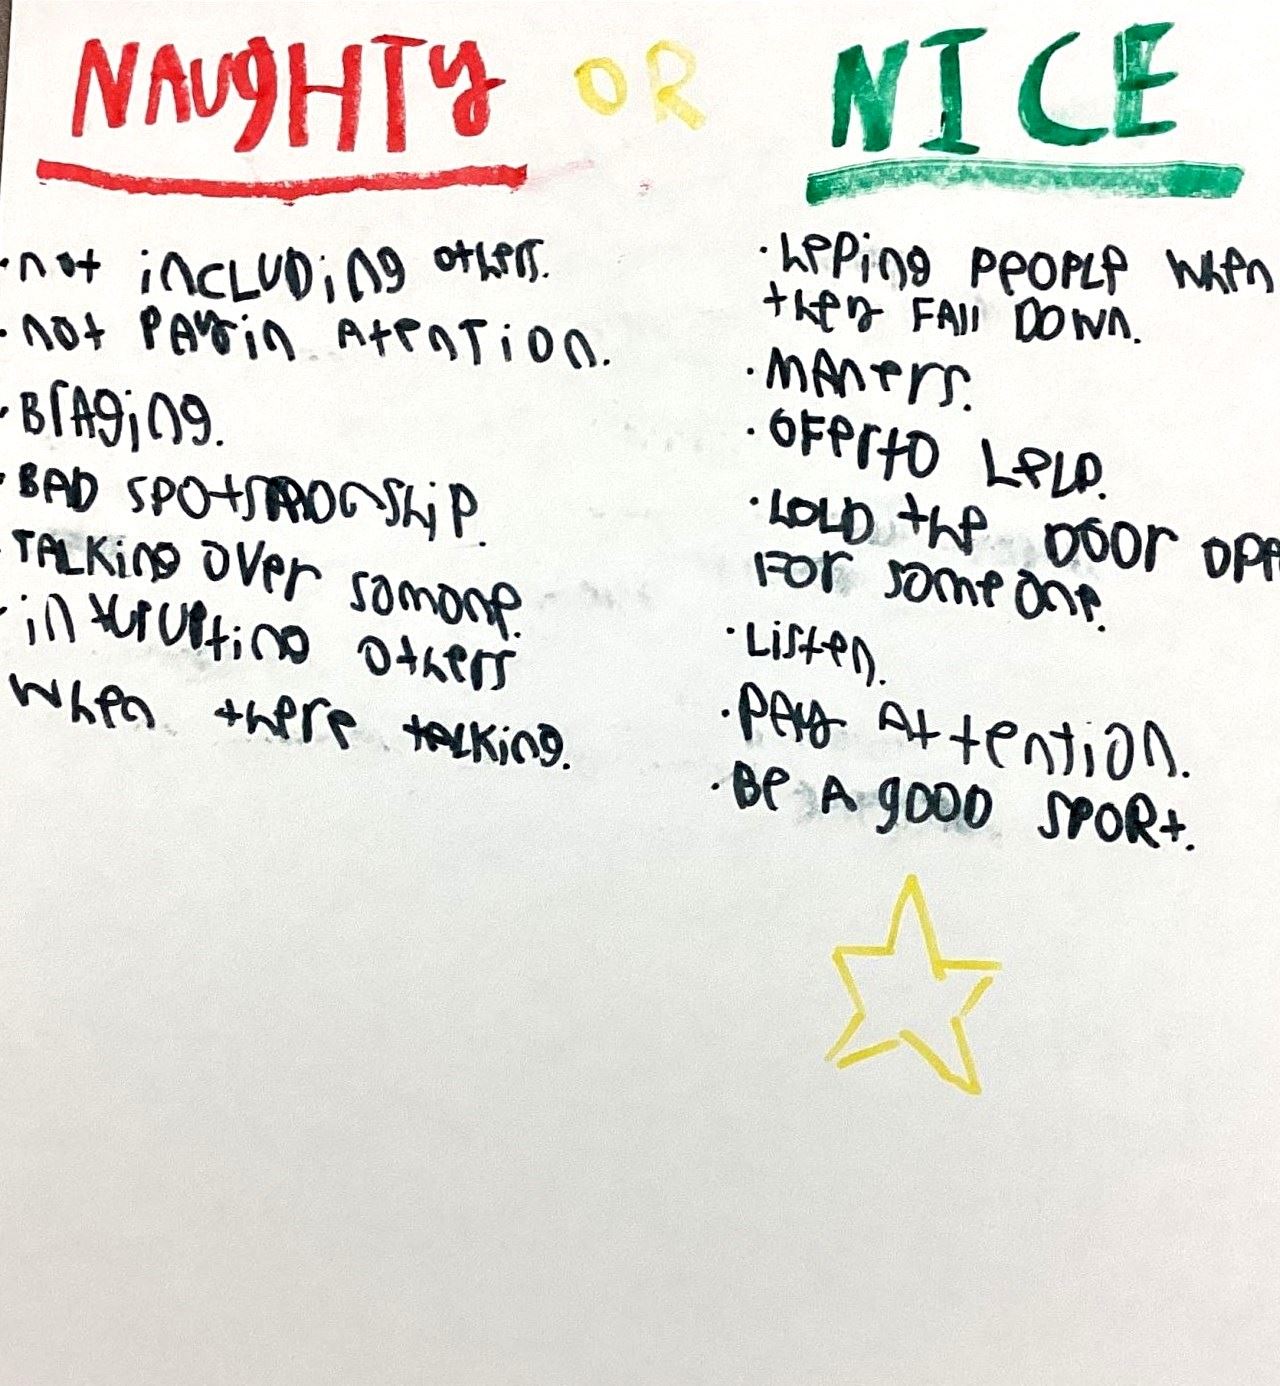 NAUgHTy OR NICE
·not iNCLUDiNg others.
·not PAyin AtenTion.
·BrAging.
·BAD SPOtS ship.
·TALKing over somone.
·inturupting others
when there talking.
·heping PeoPLe when
they FAll Down.
·MAners.
·OFerto heLp.
·hOLD the DOOr ope
For someone.
·Listen.
·PAy Attention.
·Be A gOOD SPORt.